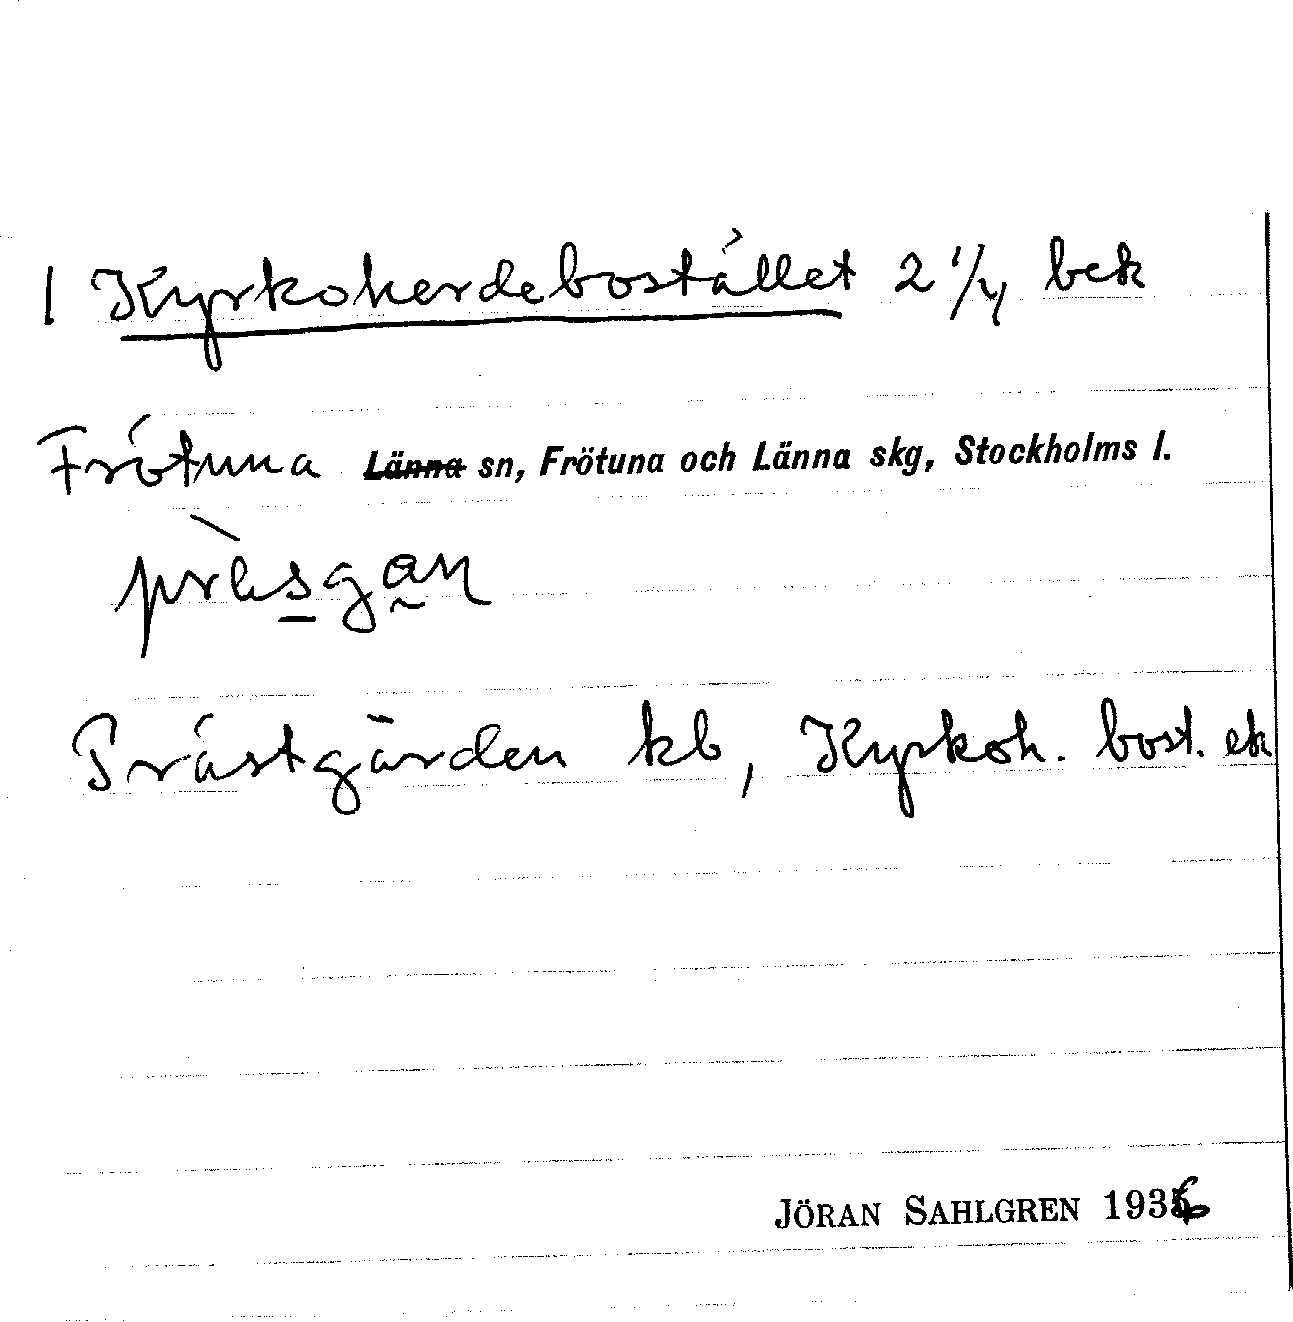 1 Kyrkoherdebostället 2 1/4 bek
Frötuna Länna sn, Frötuna och Länna skg, Stockholms l.
Prästgården kb, Kyrkoh. bost. ek
JÖRAN SAHLGREN 1936